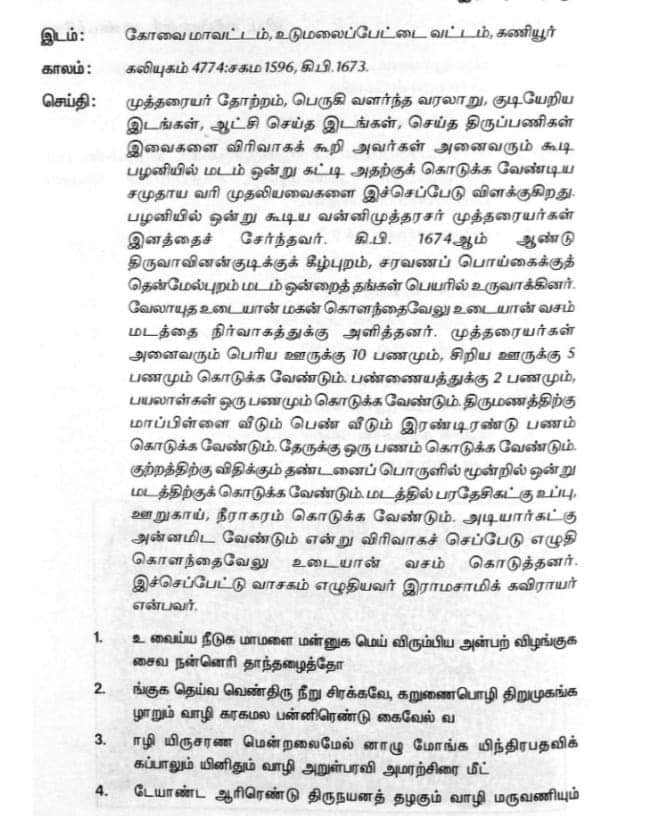 இடம்: கோவை மாவட்டம், உடுமலைப்பேட்டை வட்டம், கணியூர்
காலம்: கலியுகம் 4774:சகம 1596, கி.பி.1673.
செய்தி: முத்தரையர் தோற்றம், பெருகி வளர்ந்த வரலாறு, குடியேறிய
இடங்கள், ஆட்சி செய்த இடங்கள், செய்த திருப்பணிகள்
இவைகளை விரிவாகக் கூறி அவர்கள் அனைவரும் கூடி
பழனியில் மடம் ஒன்று கட்டி அதற்குக் கொடுக்க வேண்டிய
சமுதாய வரி முதலியவைகளை இச்செப்பேடு விளக்குகிறது.
பழனியில் ஒன்று கூடிய வன்னிமுத்தரசர் முத்தரையர்கள்
இனத்தைச் சேர்ந்தவர். கி.பி. 1674ஆம் ஆண்டு
திருவாவினன்குடிக்குக் கீழ்புறம், சரவணப் பொய்கைக்குத்
தென்மேல்புறம் மடம் ஒன்றைத் தங்கள் பெயரில் உருவாக்கினர்.
வேலாயுத உடையான் மகன் கொளந்தைவேலு உடையான் வசம்
மடத்தை நிர்வாகத்துக்கு அளித்தனர். முத்தரையர்கள்
அனைவரும் பெரிய ஊருக்கு 10 பணமும், சிறிய ஊருக்கு 5
பணமும் கொடுக்க வேண்டும். பண்ணையத்துக்கு 2 பணமும்,
பயலாள்கள் ஒரு பணமும் கொடுக்க வேண்டும். திருமணத்திற்கு
மாப்பிள்ளை வீடும் பெண் வீடும் இரண்டிரண்டு பணம்
கொடுக்க வேண்டும். தேருக்கு ஒரு பணம் கொடுக்க வேண்டும்.
குற்றத்திற்கு விதிக்கும் தண்டனைப் பொருளில் மூன்றில் ஒன்று
மடத்திற்குக் கொடுக்க வேண்டும். மடத்தில் பரதேசிகட்கு உப்பு,
ஊறுகாய், நீராகரம் கொடுக்க வேண்டும். அடியார்கட்கு
அன்னமிட வேண்டும் என்று விரிவாகச் செப்பேடு எழுதி
கொளந்தைவேலு உடையான் வசம் கொடுத்தனர்.
இச்செப்பேட்டு வாசகம் எழுதியவர் இராமசாமிக் கவிராயர்
என்பவர்.
1. உ வைய்ய நீடுக மாமளை மன்னுக மெய் விரும்பிய அன்பற் விழங்குக
சைவ நன்னெரி தாந்தழைத்தோ
2. ங்குக தெய்வ வெண்திரு நீறு சிரக்கவே, கறுணைபொழி திறுமுகங்க
ழாறும் வாழி கரகமல பன்னிரெண்டு கைவேல் வ
3. ாழி யிருசரண மென்றலைமேல் னாழு மோங்க யிந்திரபதவிக்
கப்பாலும் யினிதும் வாழி அறுள்பரவி அமரற்சிரை மீட்
4. டேயாண்ட ஆரிரெண்டு திருநயனத் தழகும் வாழி மருவணியும்